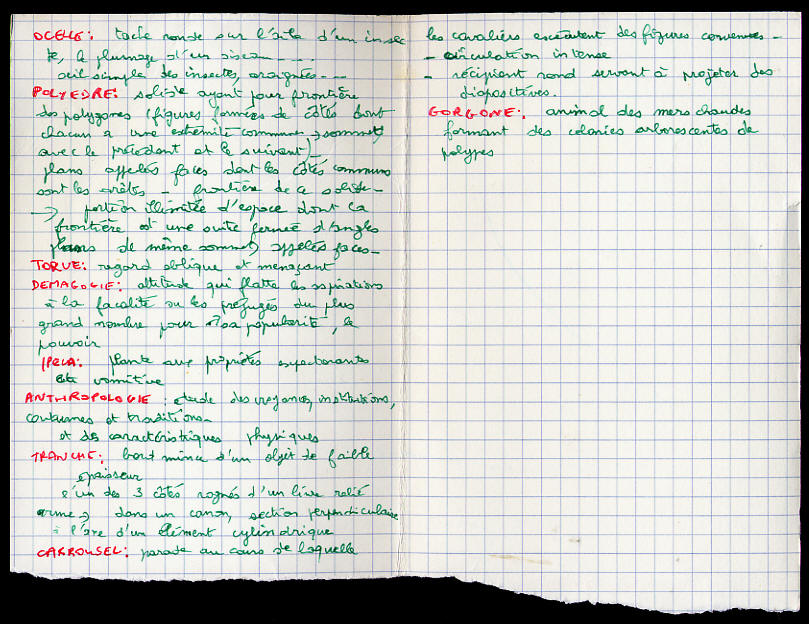 OCELLE: tache ronde sur l'aile d'un insec
te, le plumage d'un oiseau
œil simple des insectes, araignées...
POLYEDRE: solide ayant pour frontière
des polygones (figures formées de côtés dont
chacun a une extrémité commune → sommet
avec le précédent et le suivant)
plans appelés faces dont les côtés communs
sont les arêtes - frontière de ce solide -
→ portion illimitée d'espace dont la
frontière est une suite fermée d'angles
plans de même sommet, appelés faces -
TORVE: regard oblique et menaçant
DEMAGOGIE: attitude qui flatte les aspirations
à la facilité ou les préjugés du plus
grand nombre pour sa popularité, le
pouvoir
IPECA: plante aux propriétés expectorantes
et vomitive
ANTHROPOLOGIE: etude des croyances, institutions,
coutumes et traditions -
et des caractéristiques physiques
TRANCHE: bout mince d'un objet de faible
épaisseur
l'un des 3 côtés rognés d'un livre relié
arme → dans un canon, section perpendiculaire
à l'axe d'un élément cylindrique
CARROUSEL: parade au cours de laquelle
les cavaliers exécutent des figures convenues -
- circulation intense
- récipient rond servant à projeter des
diapositives.
GORGONE: animal des mers chaudes
formant des colonies arborescentes de
polypes